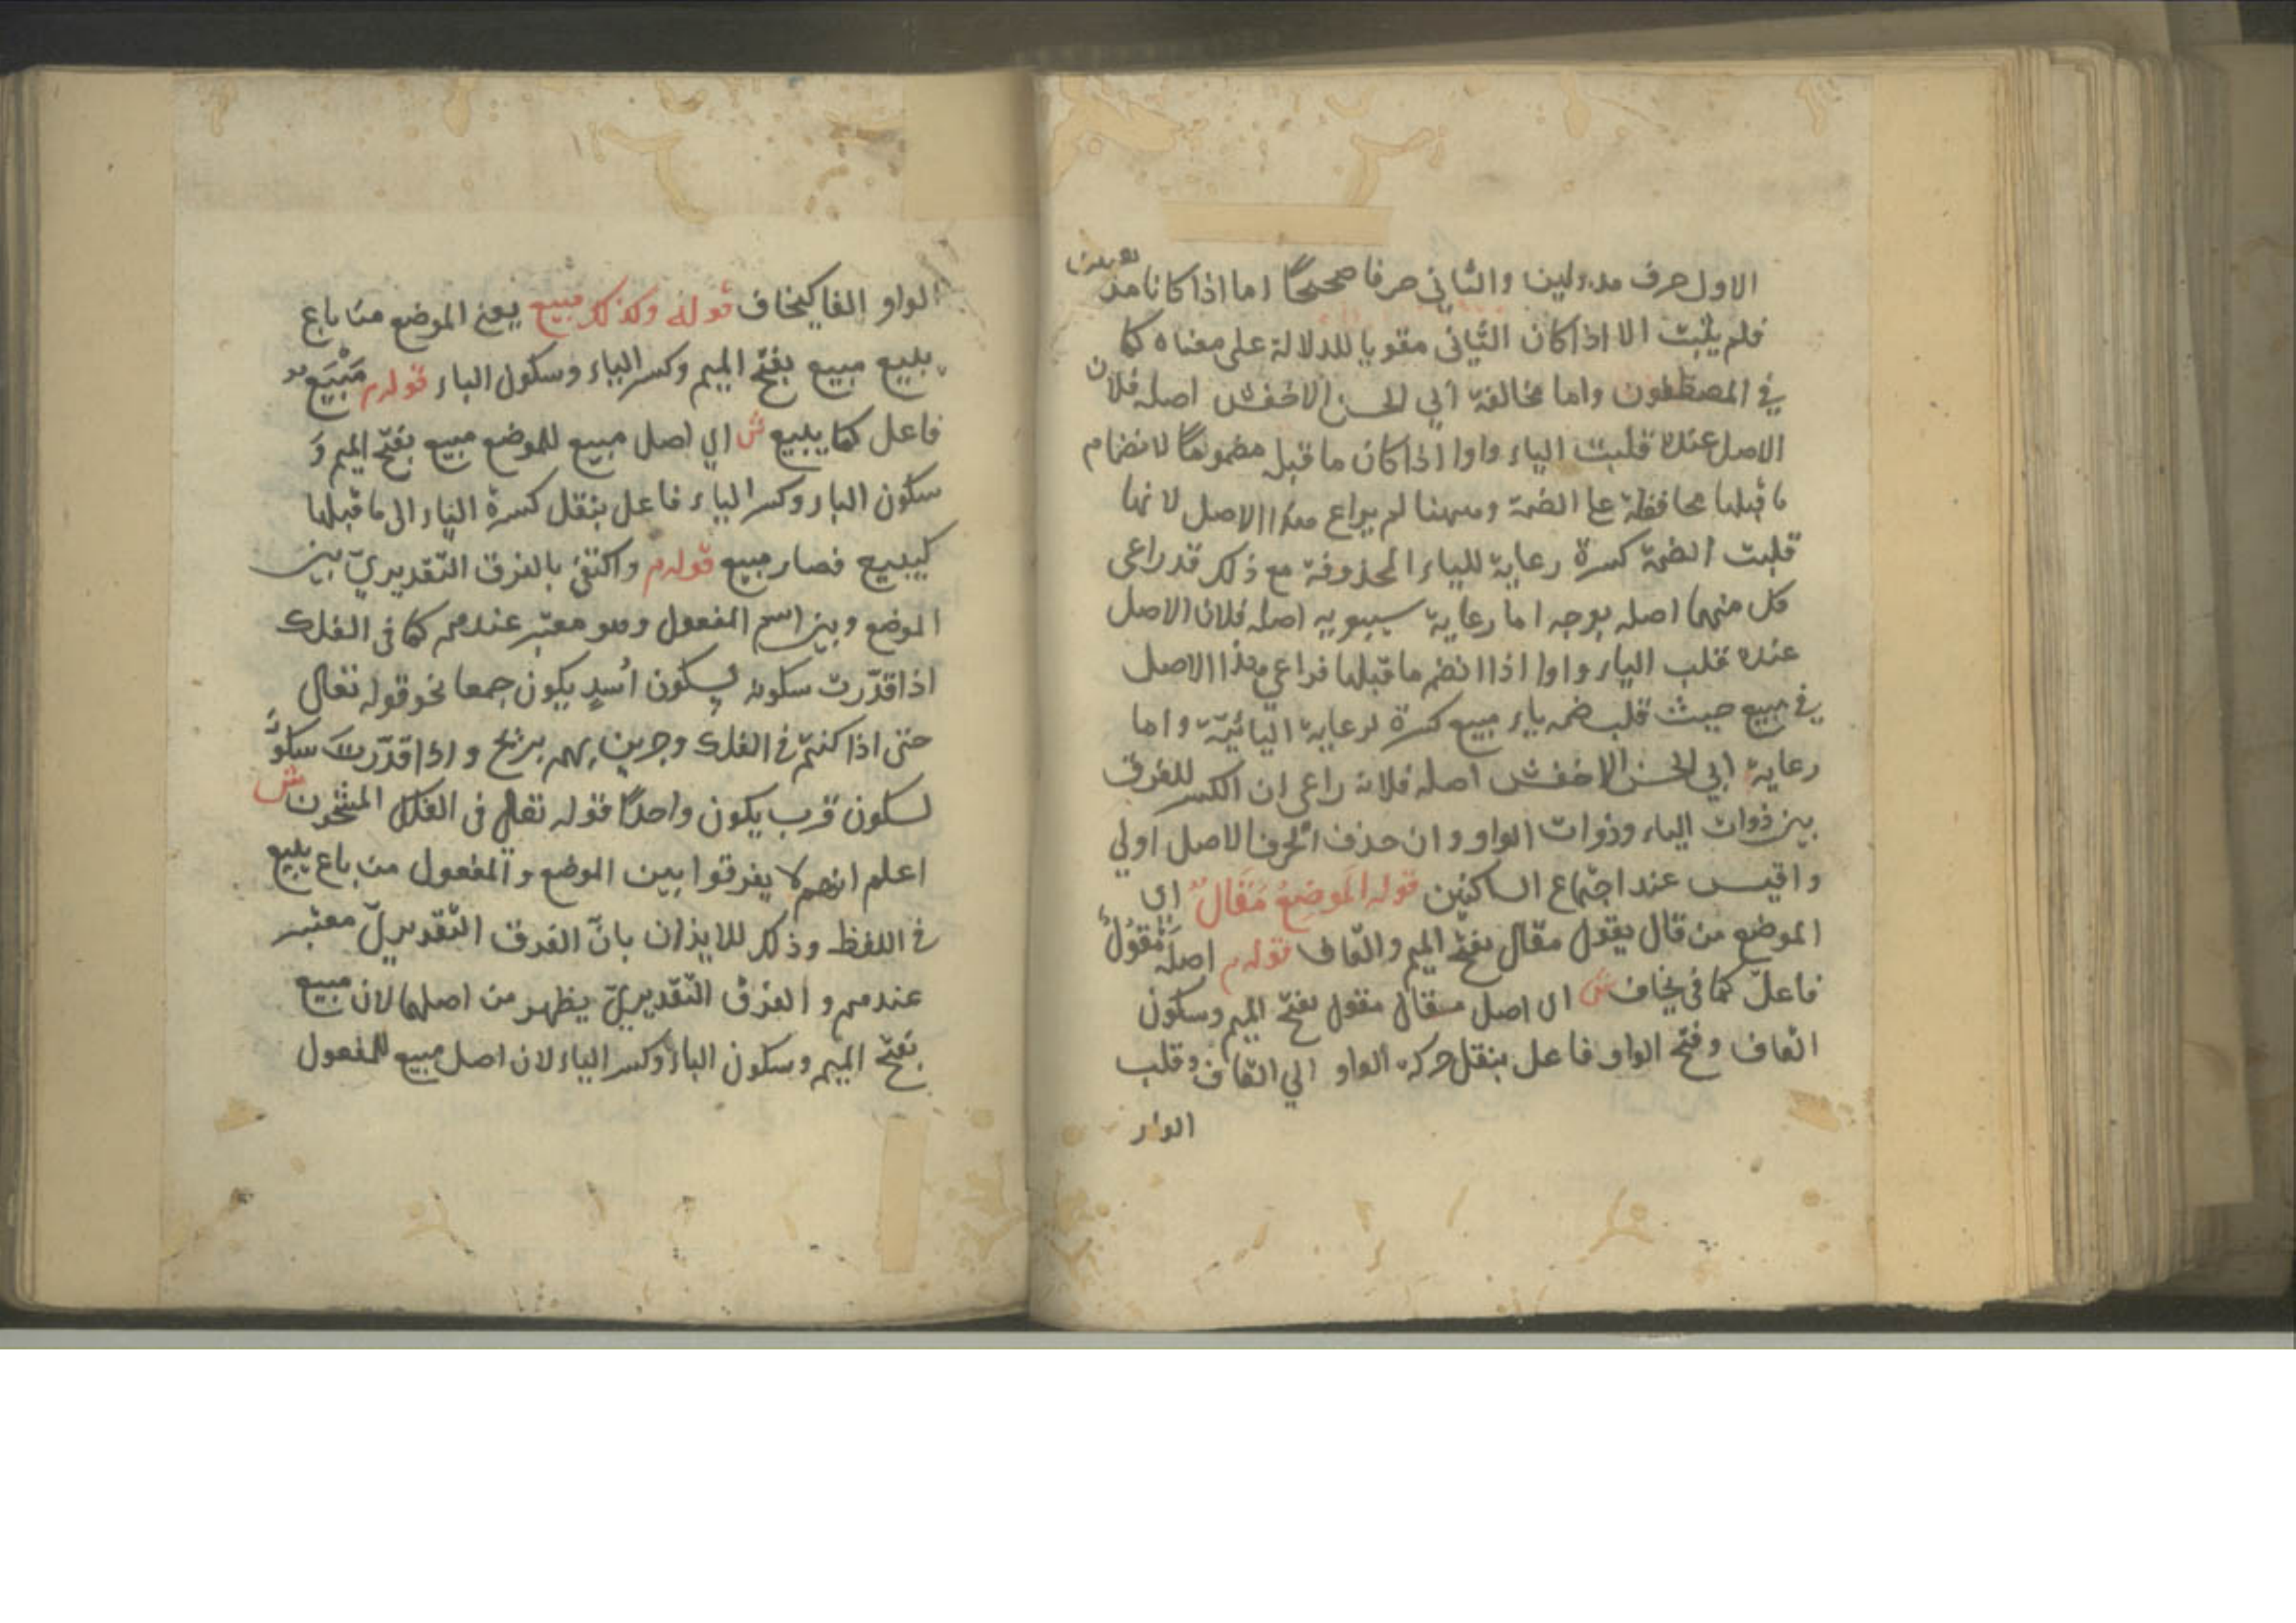 الاول حرف مد ولين والثاني حرفا صحيحًا اما اذا كانا مدتين
فلم يثبت الا اذا كان الثاني مقويا للدلالة على معناه كما
في المصطفون واما مخالفة ابي الحسن الاخفش اصله فلان
الاصل عنده قلبت الياء واوا اذا كان ما قبله مضمومًا لانضمام
ما قبلها محافظة على الضمة وههنا لم يراع هذا الاصل لانها
قلبت الضمة كسرة رعاية للياء المحذوفة مع ذلك قد راعى
كل منهما اصله بوجه اما رعاية سيبويه اصله فلان الاصل
عنده قلب الياء واوا اذا انضم ما قبلها فراعي هذا الاصل
في مبيع حيث قلب ضمه ياء مبيع كسرة لرعاية اليائيّة واما
رعاية ابي الحسن الاخفش اصله فلانه راعى ان الكسر للفرق
بين ذوات الياء وذوات الواو وان حذف الحرف الاصل اولي
واقيس عند اجتماع الساكنين قوله الموضع مَقَال اى
الموضع من قال يقول مقال بفتح الميم والقاف قوله م اصله مَقْوَلٌ
فاعلّ كما في يخاف ش اى اصل مقال مقول بفتح الميم وسكون
القاف وفتح الواو فاعل بنقل حركة الواو الي القاف وقلب
الواو
الواو الفا كيخاف قوله وكذلك مبيع يعنى الموضع من باع
يبيع مبيع بفتح الميم وكسر الباء وسكون الياء قوله م مَبْيَع
فاعل كما يبيع ش اى اصل مبيع للموضع مبيع بفتح الميم وَ
سكون الباء وكسر الياء فاعل بنقل كسرة الياء الى ما قبلها
كيبيع فصار مبيع قوله م واكتفى بالفرق التّقديريّ بين
الموضع وبين اسم المفعول وهو معتبر عندهم كما فى الفلك
اذا قدّرت سكونه لسكون اُسدٍ يكون جمعا نحو قوله تعالى
حتى اذا كنتم في الفلك وجرين بهم بريح واذا قدّرت سكونَه
لسكون قرب يكون واحدًا قوله تعالى فى الفلك المشحون ش
اعلم انهم لا يفرقوا بين الموضع والمفعول من باع يبيع
في اللفظ وذلك للايذان بانّ الفرق التّقديريّ معتبر
عندهم والفرق التّقديريّ يظهر من اصلهما لان مبيع
بفتح الميم وسكون الباء وكسر الياء لان اصل مبيع للمفعول